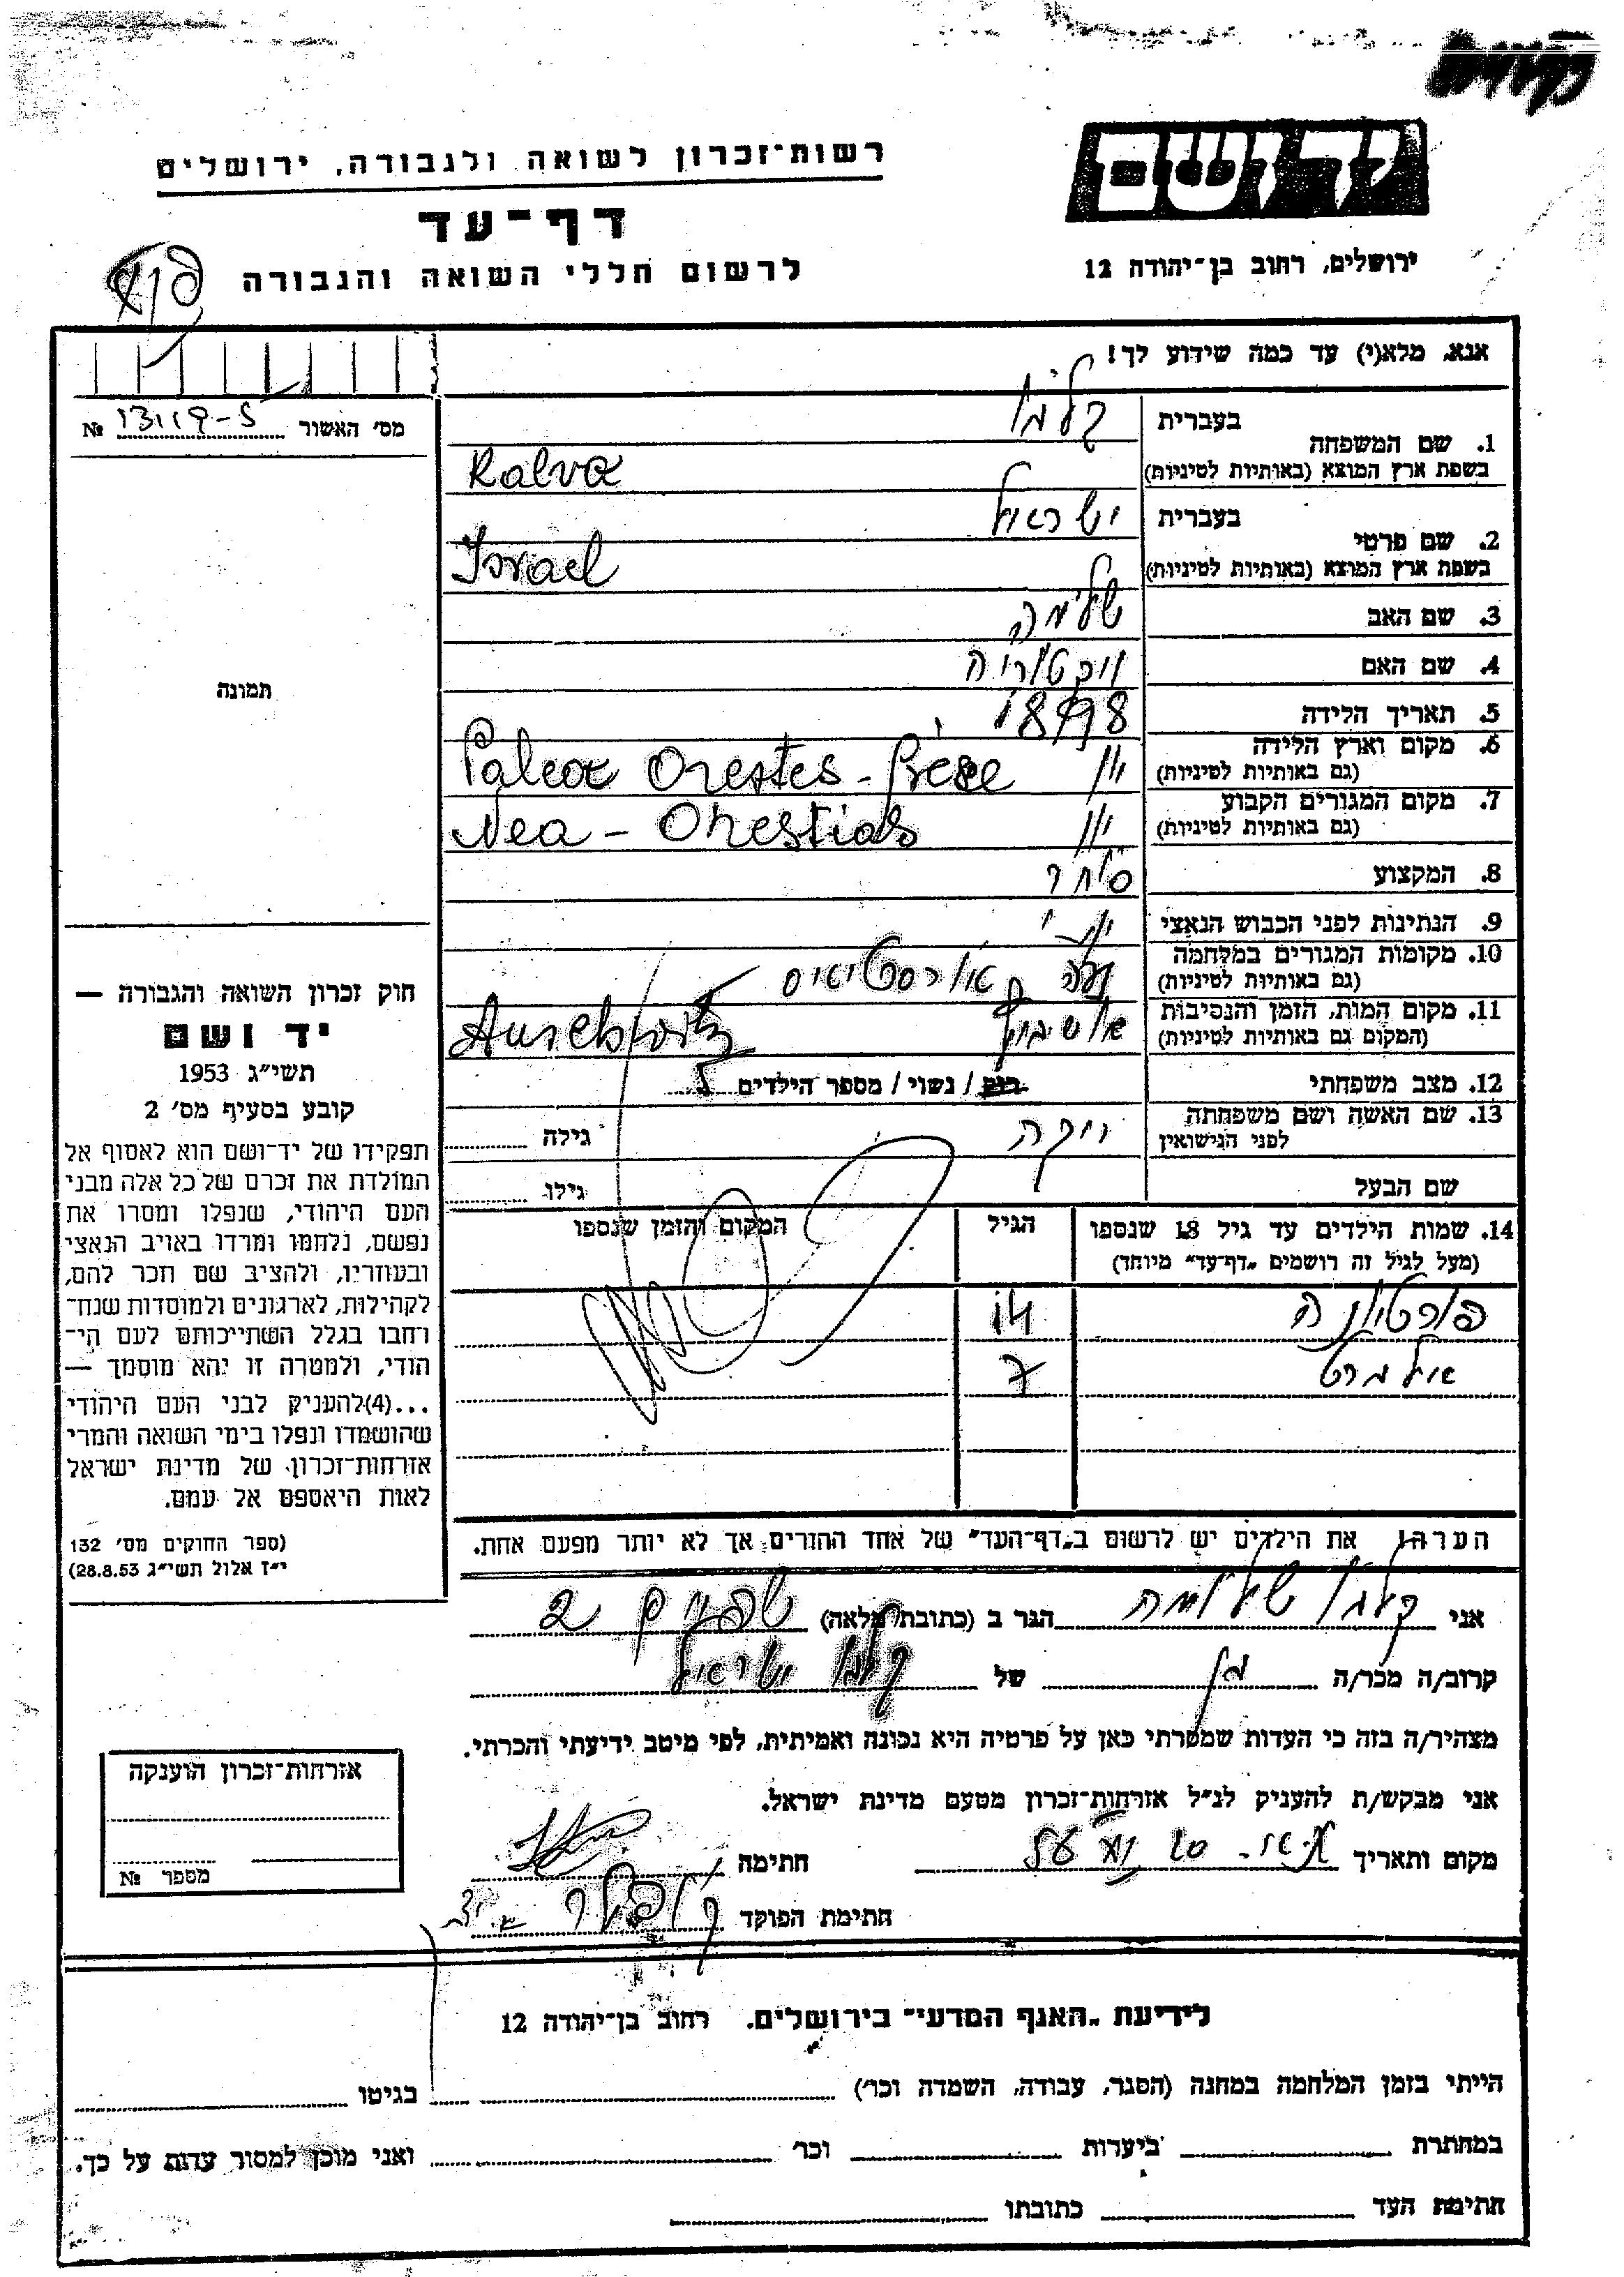 ידושם
רשות־זכרון לשואה ולגבורה, ירושלים
דף־עד
לרשום חללי השואה והגבורה
ירושלים, רחוב בן־יהודה 12
אנא, מלא(י) עד כמה שידוע לך!
מס' האשור № 13119-5
תמונה
1. שם המשפחה
בעברית קלבו
בשפת ארץ המוצא (באותיות לטיניות) Kalvo
2. שם פרטי
בעברית ישראל
בשפת ארץ המוצא (באותיות לטיניות) Israel
3. שם האב שלמה
4. שם האם ויקטוריה
5. תאריך הלידה 1898
6. מקום וארץ הלידה
(גם באותיות לטיניות) יוון Paleox Orestes -
7. מקום המגורים הקבוע
(גם באותיות לטיניות) יוון Nea - Orestias
8. המקצוע סוחר
9. הנתינות לפני הכבוש הנאצי יוני
10. מקומות המגורים במלחמה
(גם באותיות לטיניות) אורסטיאיס
11. מקום המות, הזמן והנסיבות
(המקום גם באותיות לטיניות) אושביץ Auschwitz
12. מצב משפחתי רווק / נשוי / מספר הילדים
13. שם האשה ושם משפחתה
לפני הנישואין רבקה גילה
שם הבעל גילו
14. שמות הילדים עד גיל 18 שנספו
(מעל לגיל זה רושמים "דף־עד" מיוחד)
הגיל
המקום והזמן שנספו
פורטונה 14
אלברט 7
הערה! את הילדים יש לרשום ב"דף־העד" של אחד ההורים אך לא יותר מפעם אחת.
חוק זכרון השואה והגבורה —
יד ושם
תשי"ג 1953
קובע בסעיף מס' 2
תפקידו של יד־ושם הוא לאסוף אל
המולדת את זכרם של כל אלה מבני
העם היהודי, שנפלו ומסרו את
נפשם, נלחמו ומרדו באויב הנאצי
ובעוזריו, ולהציב שם וזכר להם,
לקהילות, לארגונים ולמוסדות שנח־
רבו בגלל השתייכותם לעם הי־
הודי, ולמטרה זו יהא מוסמך —
...(4) להעניק לבני העם היהודי
שהושמדו ונפלו בימי השואה והמרי
אזרחות־זכרון של מדינת ישראל
לאות היאספם אל עמם.
(ספר החוקים מס' 132
י"ז אלול תשי"ג 28.8.53)
אני קלבו שלמה הגר ב (כתובת מלאה) 2
קרוב/ה מכר/ה בן של קלבו ישראל
מצהיר/ה בזה כי העדות שמסרתי כאן על פרטיה היא נכונה ואמיתית, לפי מיטב ידיעתי והכרתי.
אני מבקש/ת להעניק לנ"ל אזרחות־זכרון מטעם מדינת ישראל.
מקום ותאריך חתימה
חתימת הפוקד
אזרחות־זכרון הוענקה
מספר №
לידיעת "האגף המדעי" בירושלים. רחוב בן־יהודה 12
הייתי בזמן המלחמה במחנה (הסגר, עבודה, השמדה וכו') בגיטו
במחתרת ביערות וכו' ואני מוכן למסור עדות על כך.
חתימת העד כתובתו